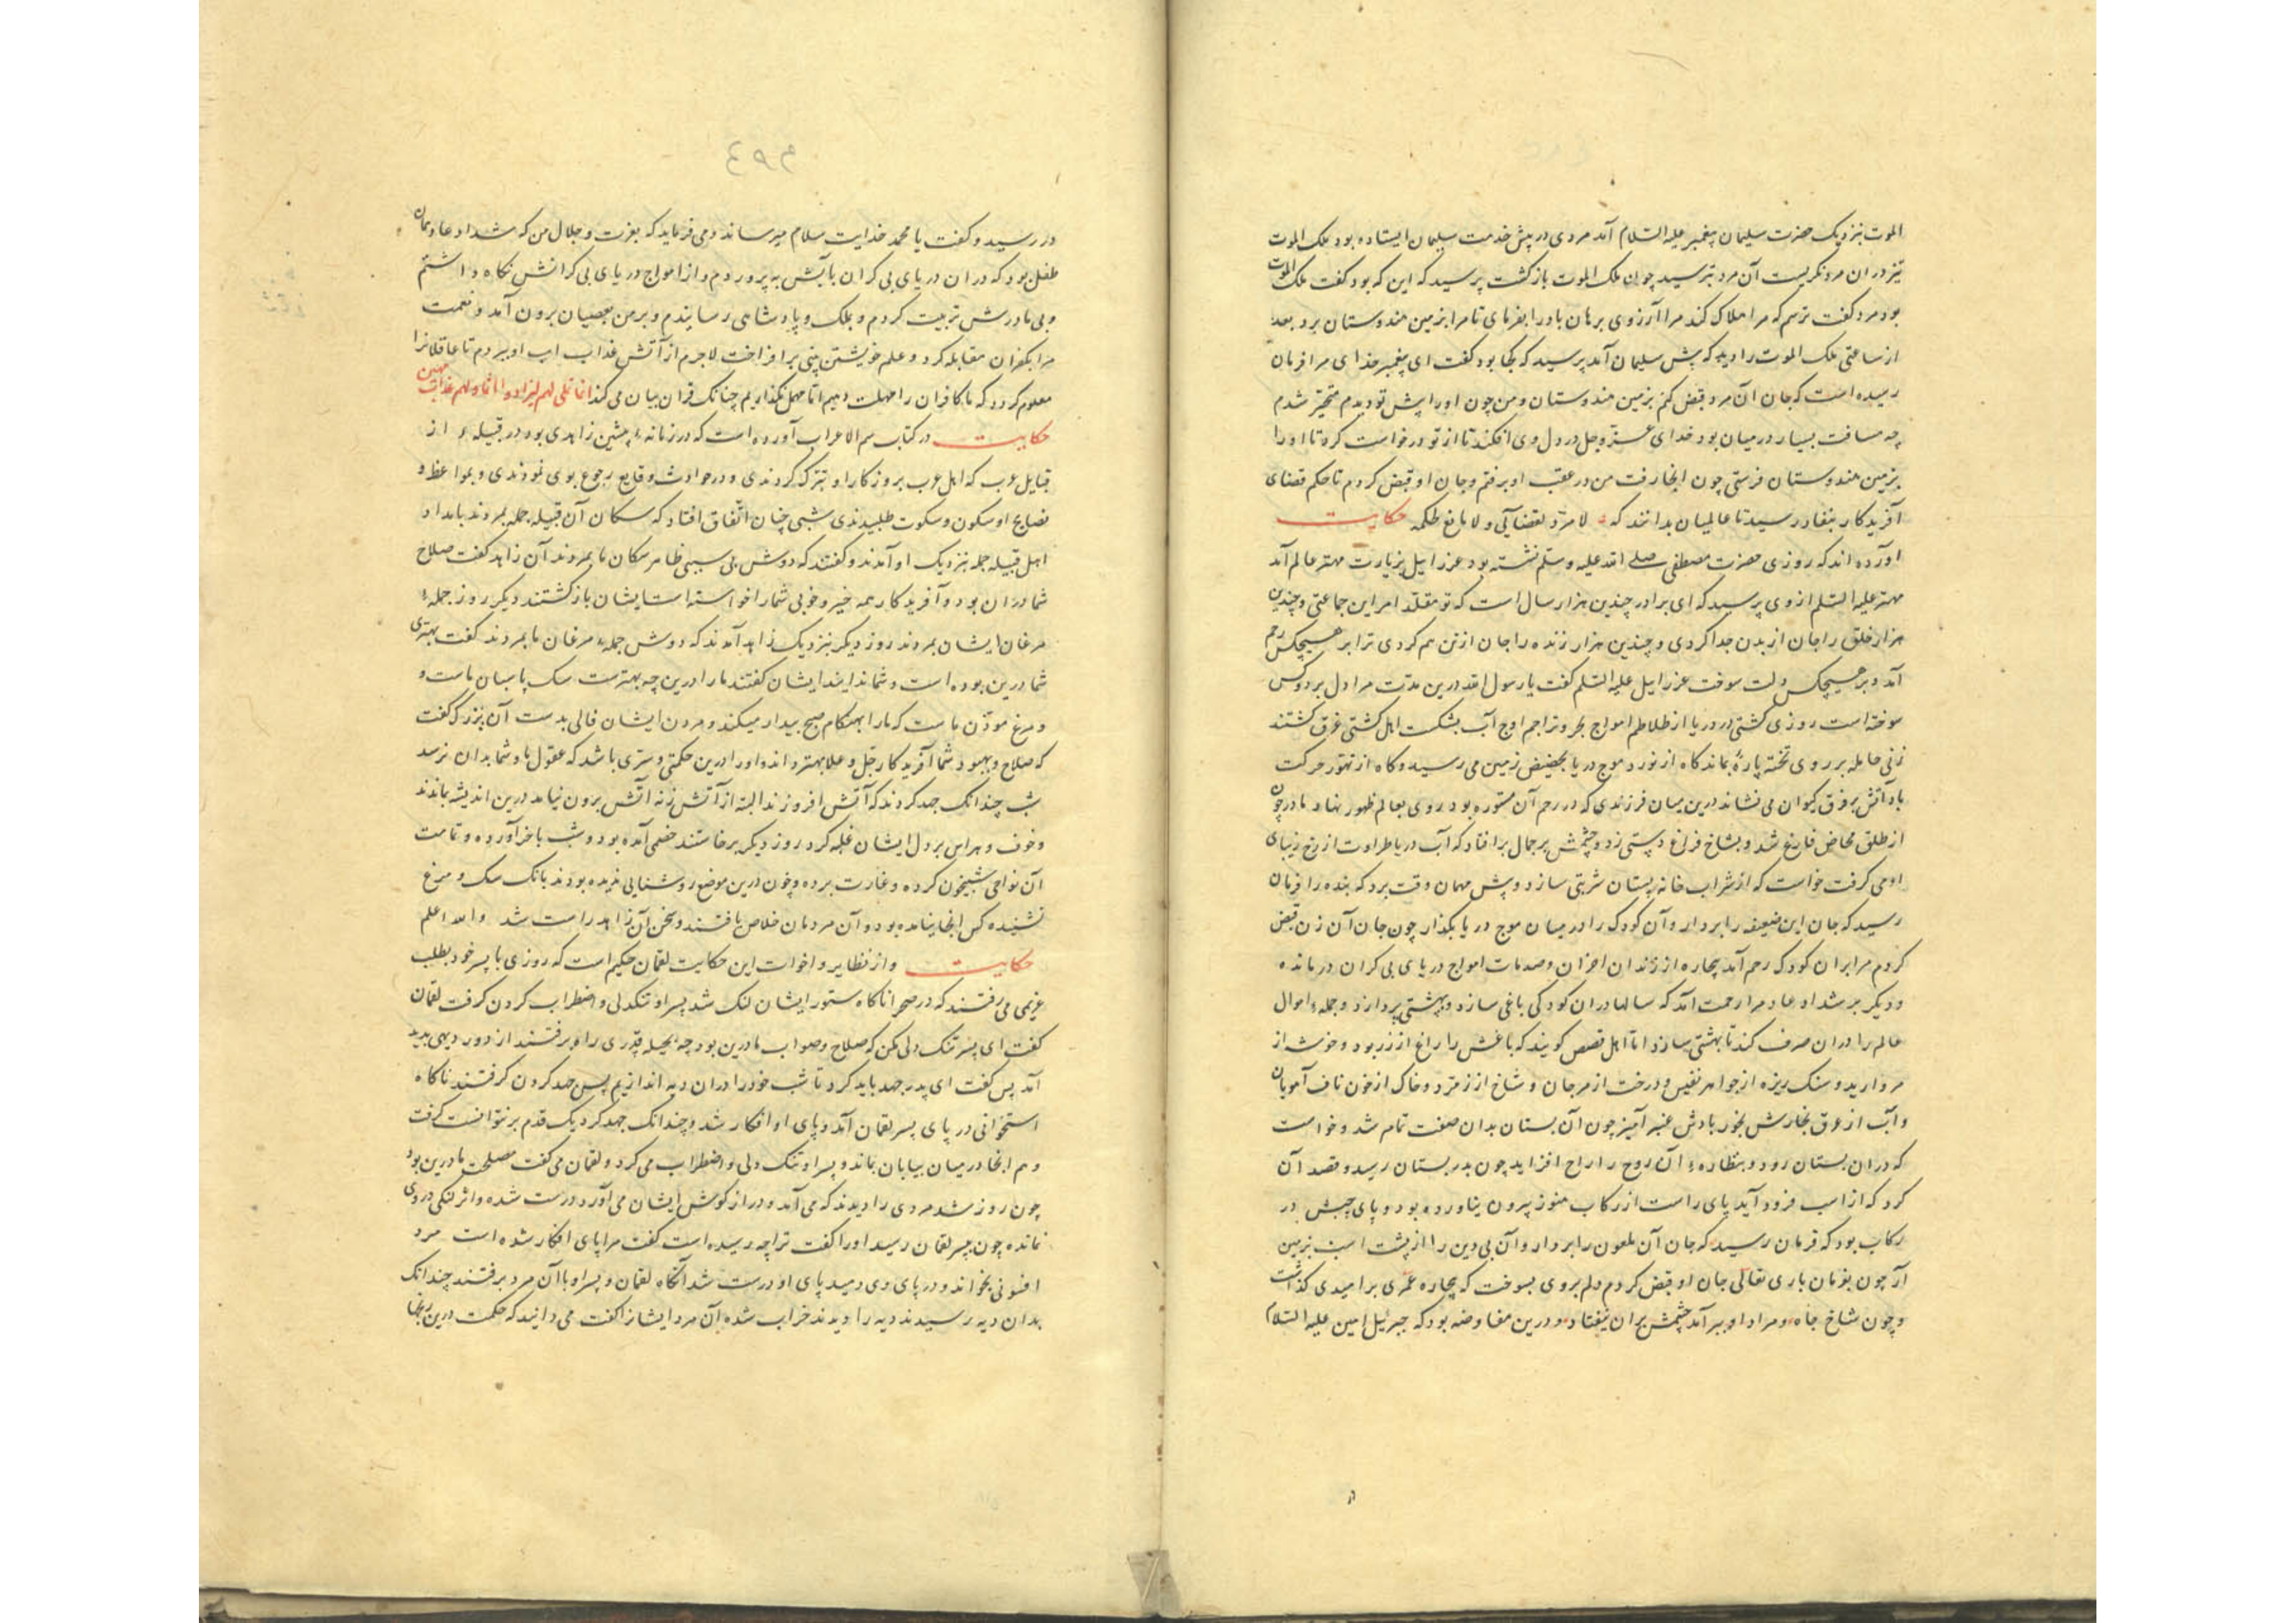 الموت بنزدیک حضرت سلیمان پیغمبر علیه السلام آمد مردی در پیش خدمت سلیمان ایستاده بود ملک الموت
تیز در ان مرد نکریست آن مرد بترسید چون ملک الموت بازکشت پرسید که این که بود کفت ملک الموت
بود مرد کفت ترسم که مرا هلاک کند مرا آرزوی برهان باد را بفرمای تا مرا بزمین هندوستان برد بعد
از ساعتی ملک الموت را دید که پیش سلیمان آمد پرسید که کجا بود کفت ای پیغمبر خدای مرا فرمان
رسیده است که جان آن مرد قبض کنم بزمین هندوستان و من چون او را پیش تو دیدم متحیّر شدم
چه مسافت بسیار در میان بود خدای عزّ و جل در دل وی افکند تا از تو درخواست کرد تا او را
بزمین هندوستان فرستی چون انجا رفت من در عقب او برفتم و جان او قبض کردم تا حکم قضای
آفریدکار بنفاد رسید تا عالمیان بدانند که لا مردّ لقضائی و لا مانع لحکمه حکایت
آورده اند که روزی حضرت مصطفی صلی الله علیه و سلّم نشسته بود عزراییل بزیارت مهتر عالم آمد
مهتر علیه السّلم از وی پرسید که ای برادر چندین هزار سال است که تو مقلّد امر این جماعتی و چندین
هزار خلق را جان از بدن جدا کردی و چندین هزار زنده را جان از تن هم کردی ترا بر هیچکس رحم
آمد و بر هیچکس دلت سوخت عزراییل علیه السّلم کفت یا رسول الله درین مدّت مرا دل بر دو کس
سوخته است روزی کشتی در دریا از طلاطم امواج بحر و تراجم اوج آب بشکست اهل کشتی غرق کشتند
زنی حامله بر روی تخته پارهٔ بماند کاه از نورد موج دریا بحضیض زمین می رسید و کاه از تهوّر حرکت
باد آتش بر فرق کیوان می نشاند درین میان فرزندی که در رحم آن مستوره بود روی بعالم ظهور نهاد مادر چون
از طلق مخاض فارغ شد و بشاخ فراغ دستی زد و چشمش بر جمال برافتاد که آب دریا طراوت از رخ زیبای
او می کرفت خواست که از شراب خانه پستان شربتی سازد و پیش مهمان وقت برد که بنده را فرمان
رسید که جان این ضعیفه را بردار و آن کودک را در میان موج دریا بکذار چون جان آن زن قبض
کردم مرا بر ان کودک رحم آمد بیچاره از زندان احزان و صدمات امواج دریای بی کران در مانده
و دیکر بر شداد عاد مرا رحمت آمد که سالها در ان کودکی باغی سازد و بهشتی پردازد و جملهٔ اموال
عالم را در ان صرف کند تا بهشتی سازد اما اهل قصص کویند که باغش را راغ از زر بود و خوشه از
مروارید و سنک ریزه از جواهر نفیس و درخت از مرجان و شاخ از زمرّد و خاک از خون ناف آهویان
و آب از عرق بخارش بخور بادش عنبر آمیز چون آن بستان بدان صفت تمام شد و خواست
که دران بستان رود و بنظارهٔ آن روح را راح افزاید چون بدر بستان رسید و قصد آن
کرد که از اسب فرود آید پای راست از رکاب هنوز بیرون نیاورده بود و پای چپش در
رکاب بود که فرمان رسید که جان آن ملعون را بردار و آن بی دین را از پشت اسب بزمین
آر چون بفرمان باری تعالی جان او قبض کردم دلم بروی بسوخت که بیچاره عمری بر امیدی کذاشت
و چون شاخ جاه و مراد او ببر آمد چشمش بران نیفتاد و درین مفاوضه بود که جبرئیل امین علیه السّلام
در رسید و کفت یا محمد خدایت سلام میرساند و می فرماید که بعزت و جلال من که شداد عاد همان
طفل بود که دران دریای بی کران با آبش بپروردم و از امواج دریای بی کرانش نکاه داشتم
و بی مادرش تربیت کردم و بملک و پادشاهی رسانیدم و بر من بعصیان برون آمد و نعمت
مرا بکفران مقابله کرد و علم خویشتن بینی برافراخت لاجرم از آتش عذاب اب او ببردم تا عاقلانرا
معلوم کردد که ما کافران را مهلت دهیم اما مهمل نکذاریم چنانک قران بیان می کند انما نملی لهم لیزدادوا اثما و لهم عذاب مهین
حکایت در کتاب سم الاعراب آورده است که در زمانهٔ پیشین زاهدی بود در قبیلهٔ از
قبایل عرب که اهل عرب بروزکار او تبرّک کردندی و در حوادث وقایع رجوع بوی نمودندی و بمواعظ و
نصایح او سکون و سکوت طلبیدندی شبی چنان اتّفاق افتاد که سکان آن قبیله جمله بمردند بامداد
اهل قبیله جمله بنزدیک او آمدند و کفتند که دوش بی سببی ظاهر سکان ما بمردند آن زاهد کفت صلاح
شما دران بود و آفریدکار همه خیر و خوبی شما را خواسته است ایشان بازکشتند دیکر روز جملهٔ
مرغان ایشان بمردند روز دیکر بنزدیک زاهد آمدند که دوش جملهٔ مرغان ما بمردند کفت بهتری
شما درین بوده است و شما ندانید ایشان کفتند ما را درین چه بهترست سک پاسبان ماست و
و مرغ موذّن ماست که ما را بهنکام صبح بیدار میکند و مردن ایشان فالی بدست آن بزرک کفت
که صلاح و بهبود شما آفریدکار جلّ و علا بهتر داند او را درین حکمتی و سرّی باشد که عقول ما و شما بدان نرسد
شب چندانک جهد کردند که آتش افروزند البته از آتش زنه آتش برون نیامد درین اندیشه بماندند
و خوف و هراس بر دل ایشان غلبه کرد روز دیکر برخاستند خصمی آمده بود و شب تاختن آورده و تمامت
آن نواحی شبیخون کرده و غارت برده و چون درین موضع روشنایی ندیده بودند بانک سک و مرغ
نشنیده کس انجا نیامده بود و آن مردمان خلاص یافتند و سخن آن زاهد راست شد والله اعلم
حکایت و از نظایر و اخوات این حکایت لقمان حکیم است که روزی با پسر خود بطلب
غریمی می رفتند که در صحرا ناکاه ستور ایشان لنک شد پسر او تنکدلی و اضطراب کردن کرفت لقمان
کفت ای پسر تنک دلی مکن که صلاح و صواب ما درین بود چه بحیله قدری راه برفتند از دور دیهی پدید
آمد پس کفت ای پدر جهد باید کرد تا شب خود را دران دیه اندازیم پس جهد کردن کرفتند ناکاه
استخوانی در پای پسر لقمان آمد و پای او افکار شد و چندانک جهد کرد یک قدم بر نتوانست کرفت
و هم انجا در میان بیابان بماند و پسر او تنک دلی و اضطراب می کرد و لقمان می کفت مصلحت ما درین بود
چون روز شد مردی را دیدند که می آمد و دراز کوش ایشان می آورد درست شده و اثر لنکی در وی
نمانده چون بپسر لقمان رسید او را کفت ترا چه رسیده است کفت مرا پای افکار شده است مرد
افسونی بخواند و در پای وی دمید پای او درست شد آنکاه لقمان و پسر او با آن مرد برفتند چندانک
بدان دیه رسیدند دیه را دیدند خراب شده آن مرد ایشانرا کفت می دانید که حکمت درین رنجها